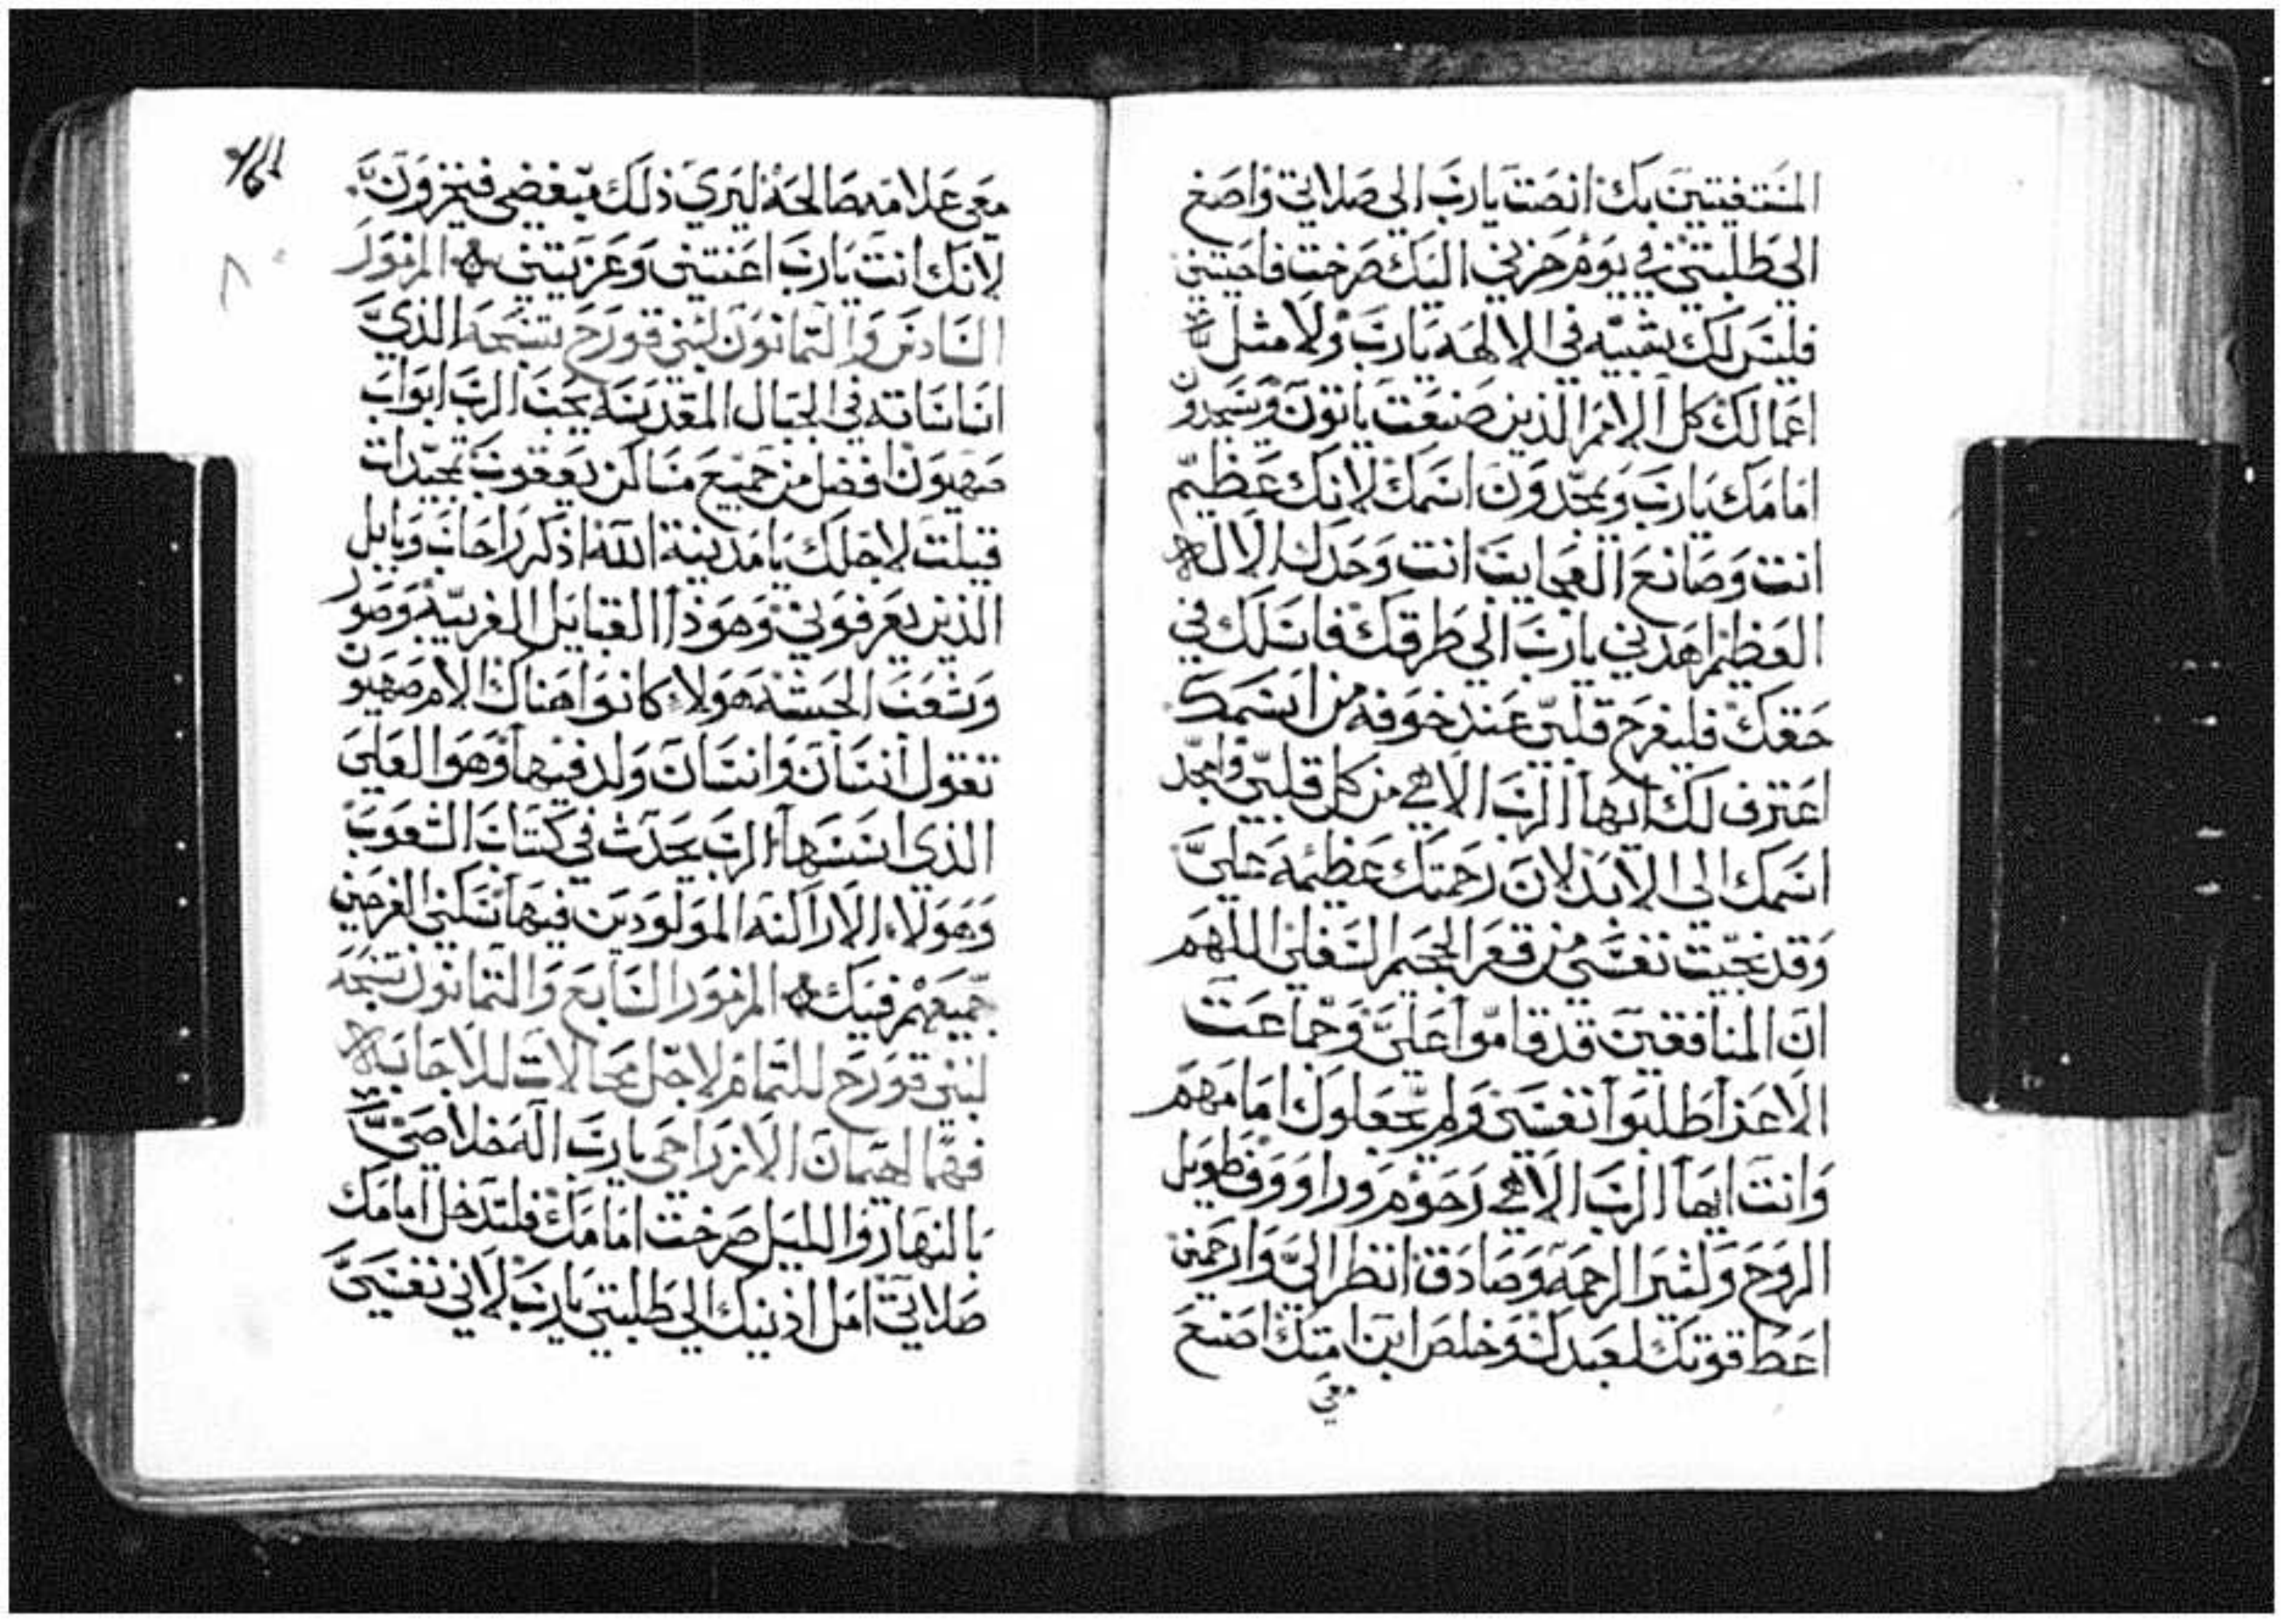 المستغيثين بك انصت يارب الي صلاتي واصغ
الي طلبتي في يوم حزني اليك صرخت فاجبتني
فليس لك شبيه في الالهه يارب ولا مثل
اعمالك كل الامم الذين صنعت ياتون ويسجدون
امامك يارب ويمجدون اسمك لانك عظيم
انت وصانع العجايب انت وحدك الاله
العظيم اهدني يارب الي طرقك فاسلك في
حقك فليفرح قلبي عند خوفه من اسمك
اعترف لك ايها الرب الاهي من كل قلبي وامجد
اسمك الي الابد لان رحمتك عظيمه علي
وقد نجيت نفسي من قعر الجحيم السفلي اللهم
ان المنافقين قد قاموا علي وجماعت
الاعزا طلبوا نفسي ولم يجعلوك امامهم
وانت ايها الرب الاهي رحوم وراووف طويل
الروح وكثير الرحمه وصادق انظر الي وارحمني
اعط قوتك لعبدك وخلص ابن امتك اصنع
معي
معي علامه صالحة ليري ذلك مبغضي فيخزون
لانك انت يارب اعنتني وعزيتني المزمور
السادس والثمانون لبني قورح تسبحه الذي
اساساته في الجبال المقدسه يحب الرب ابواب
صهيون افضل من جميع مساكن يعقوب تمجيدات
قيلت لاجلك يا مدينة الله اذكر راحاب وبابل
الذين يعرفوني وهوذا القبايل الغريبة وصور
وشعب الحبشه هولاء كانوا هناك الام صهيون
تقول انسان وانسان ولد فيها وهو العلي
الذي اسسها الرب يحدث في كتاب الشعوب
وهولاء الاراكنه المولودين فيها سكني الفرحين
جميعهم فيك المزمور السابع والثمانون تسبحه
لبني قورح للتمام لاجل محالات للاجابه
فهما لهيمان الازراحي يارب اله خلاصي
بالنهار والليل صرخت امامك فلتدخل امامك
صلاتي امل اذنيك الي طلبتي يارب لاني نفسي